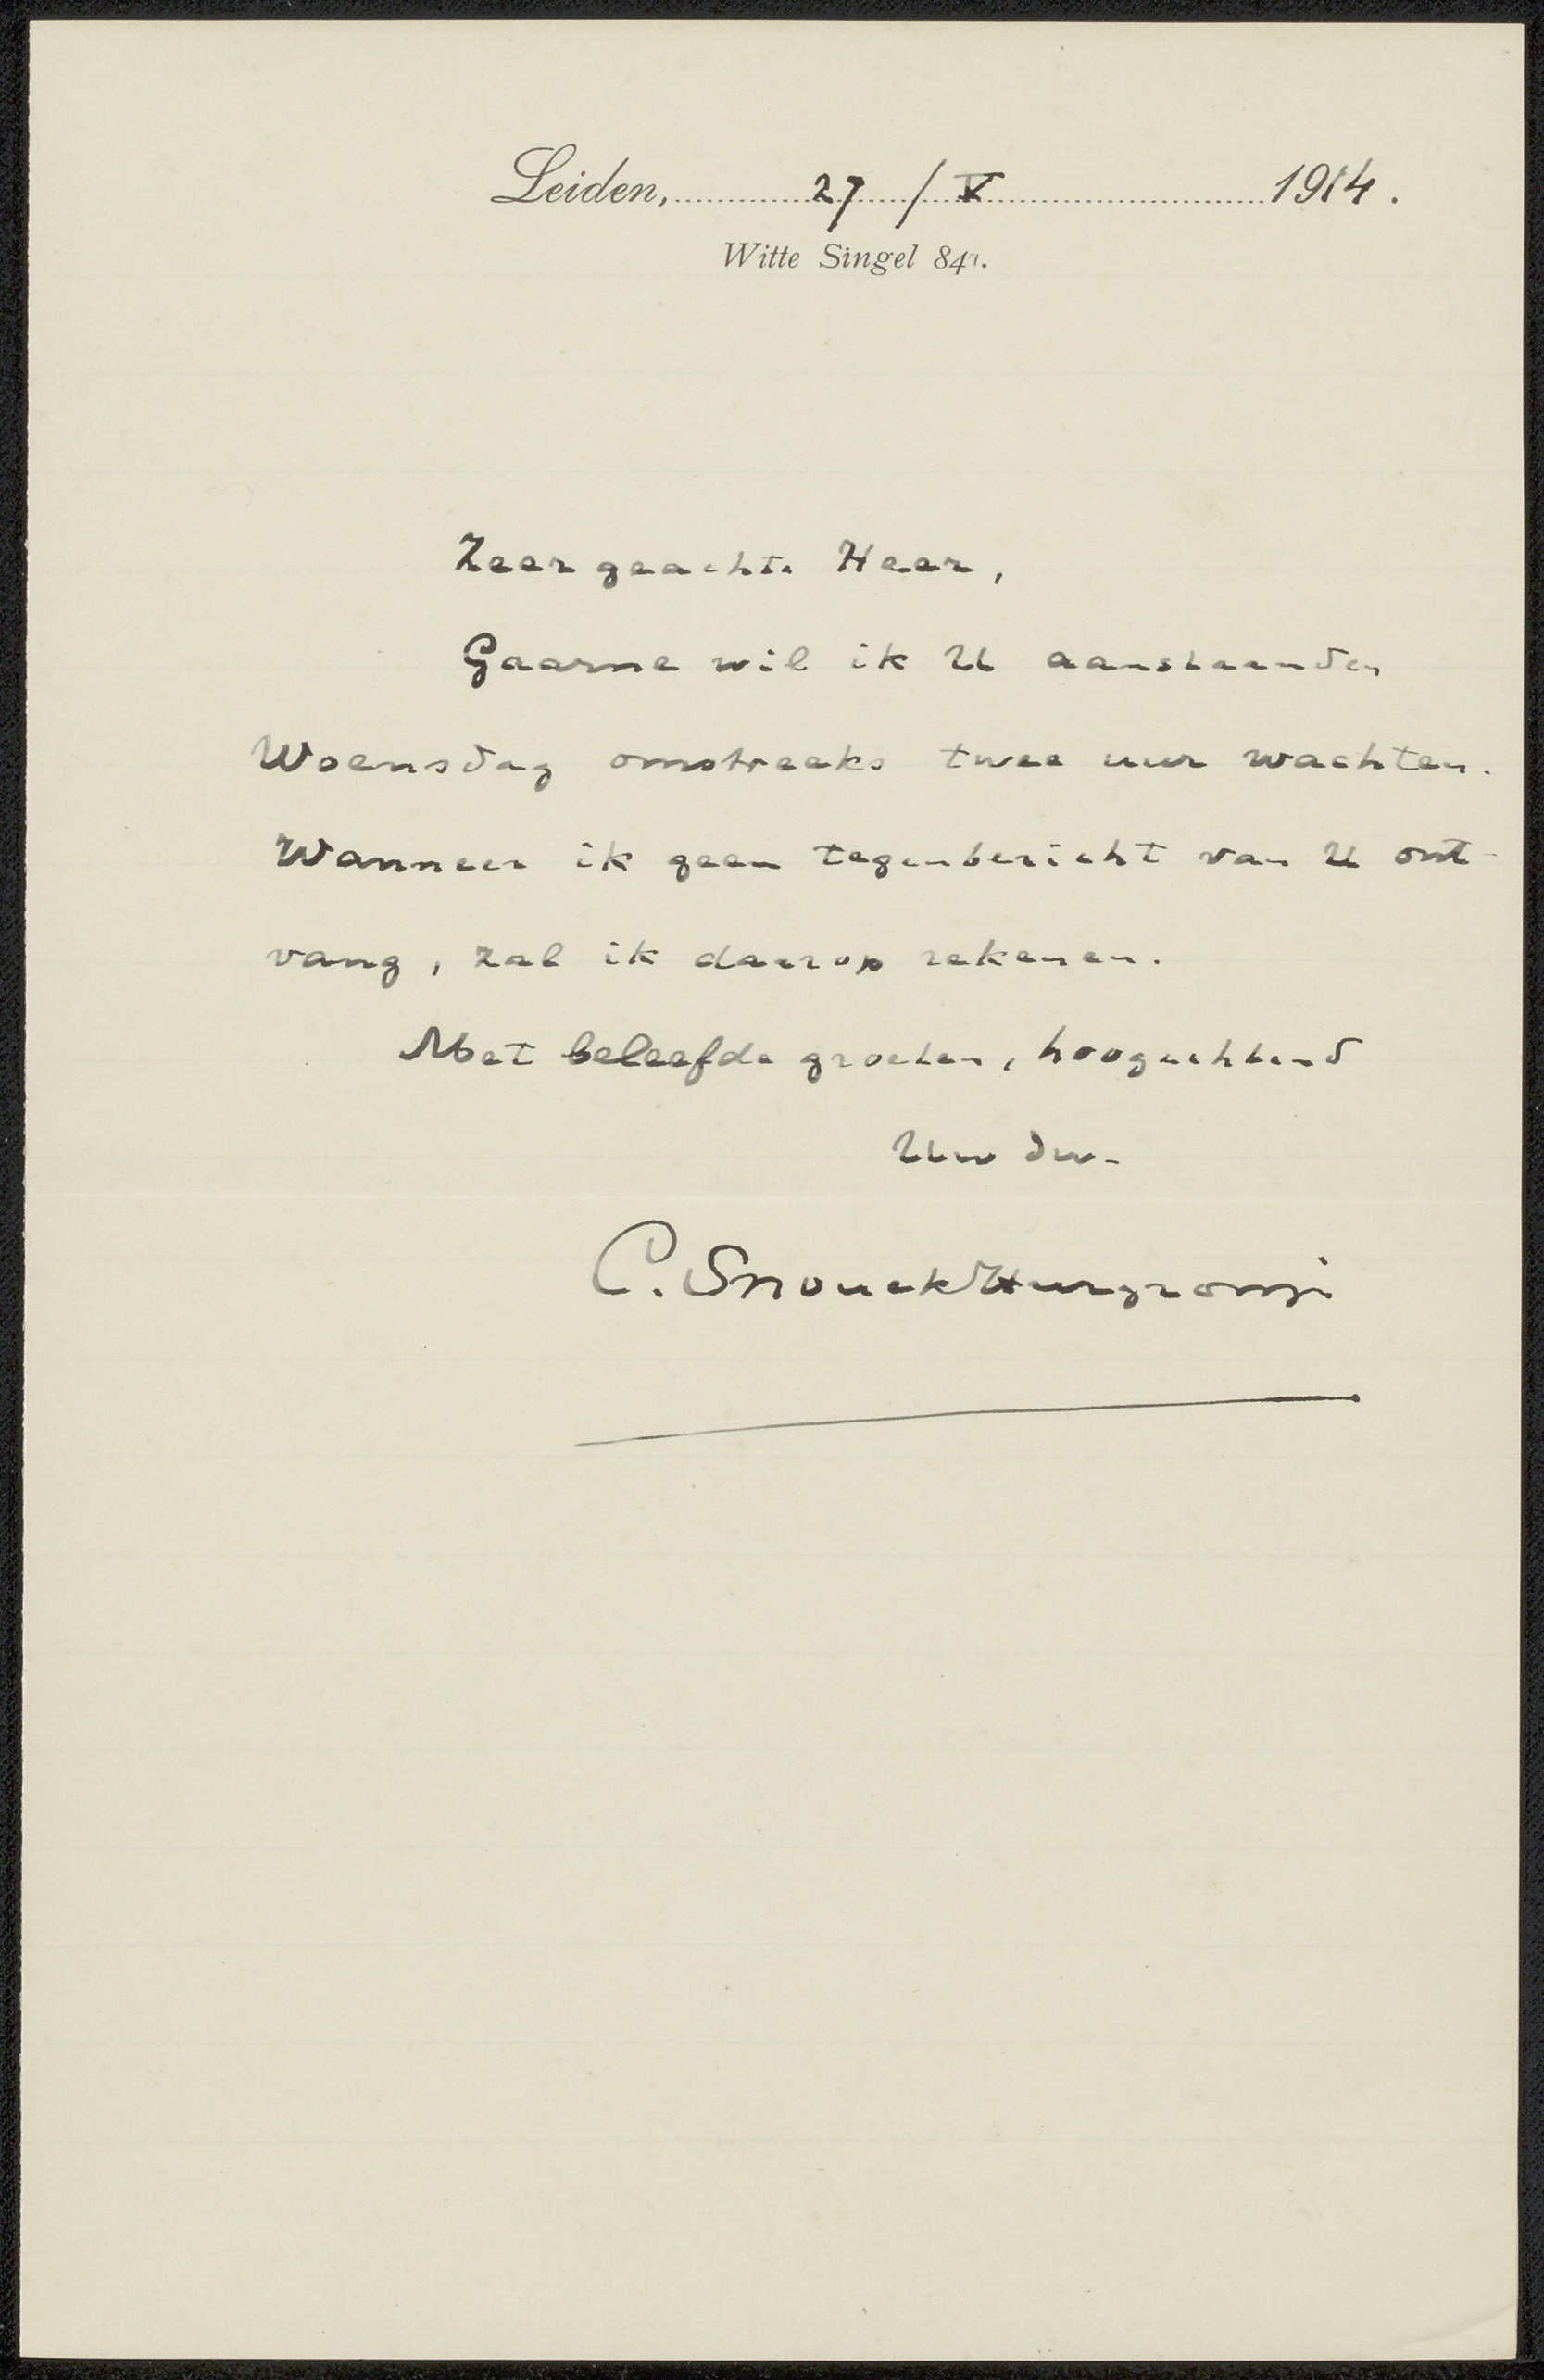 Leiden, 27 / V 1914.
Witte Singel 84a.
Zeer geachte Heer,
Gaarne wil ik U aanstaanden
Woensdag omstreeks twee uur wachten.
Wanneer ik geen tegenbericht van U ont-
vang, zal ik daarop rekenen.
Met beleefde groeten, hoogachtend
Uw dw.
C. Snouck Hurgronje